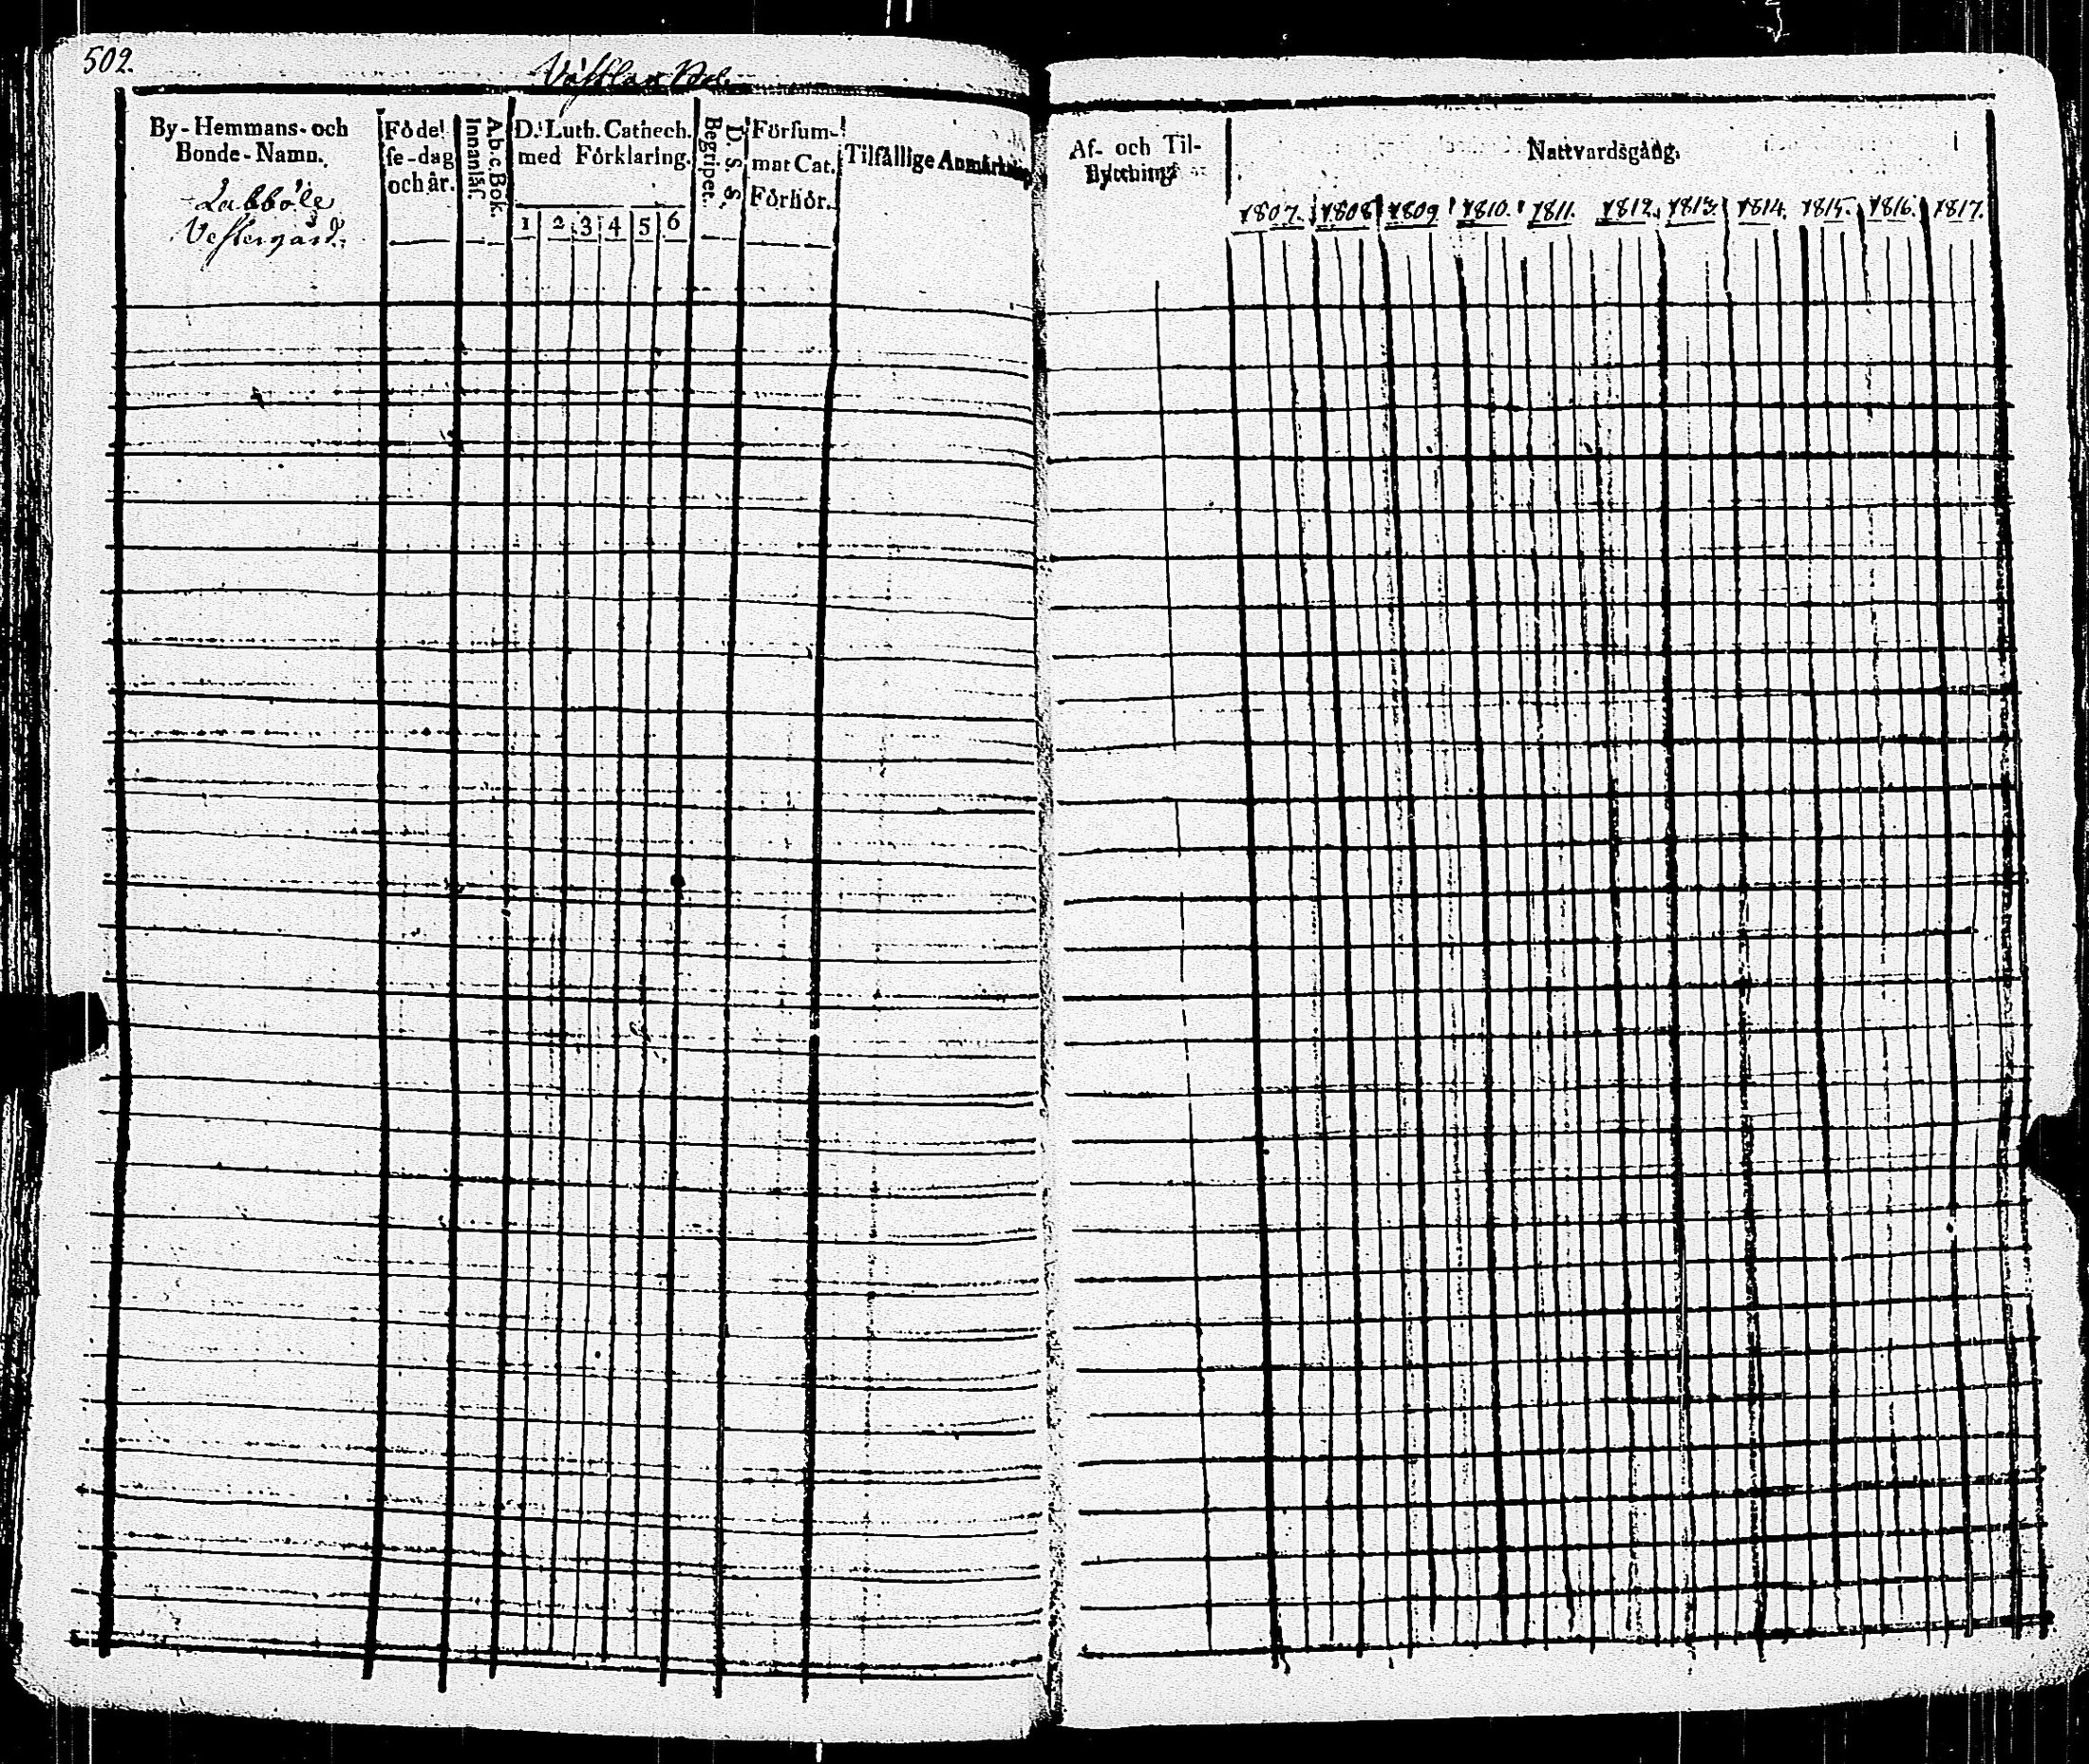 502.
Väftlax Bol.
By-Hemmans- och
Bonde-Namn.
Labböle
Veftergård.
Födel-
se-dag
och år.
A.b.c.Bok.
Innanläs.
D. Luth. Cathech.
med Förklaring.
1 2 3 4 5 6
D. S. S.
Begripet.
Försum-
mat Cat.
Förhör.
Tilfällige Anmärkning
Af- och Til-
flyttning
Nattvardsgång.
1807. 1808 1809 1810. 1811. 1812. 1813. 1814. 1815. 1816. 1817.